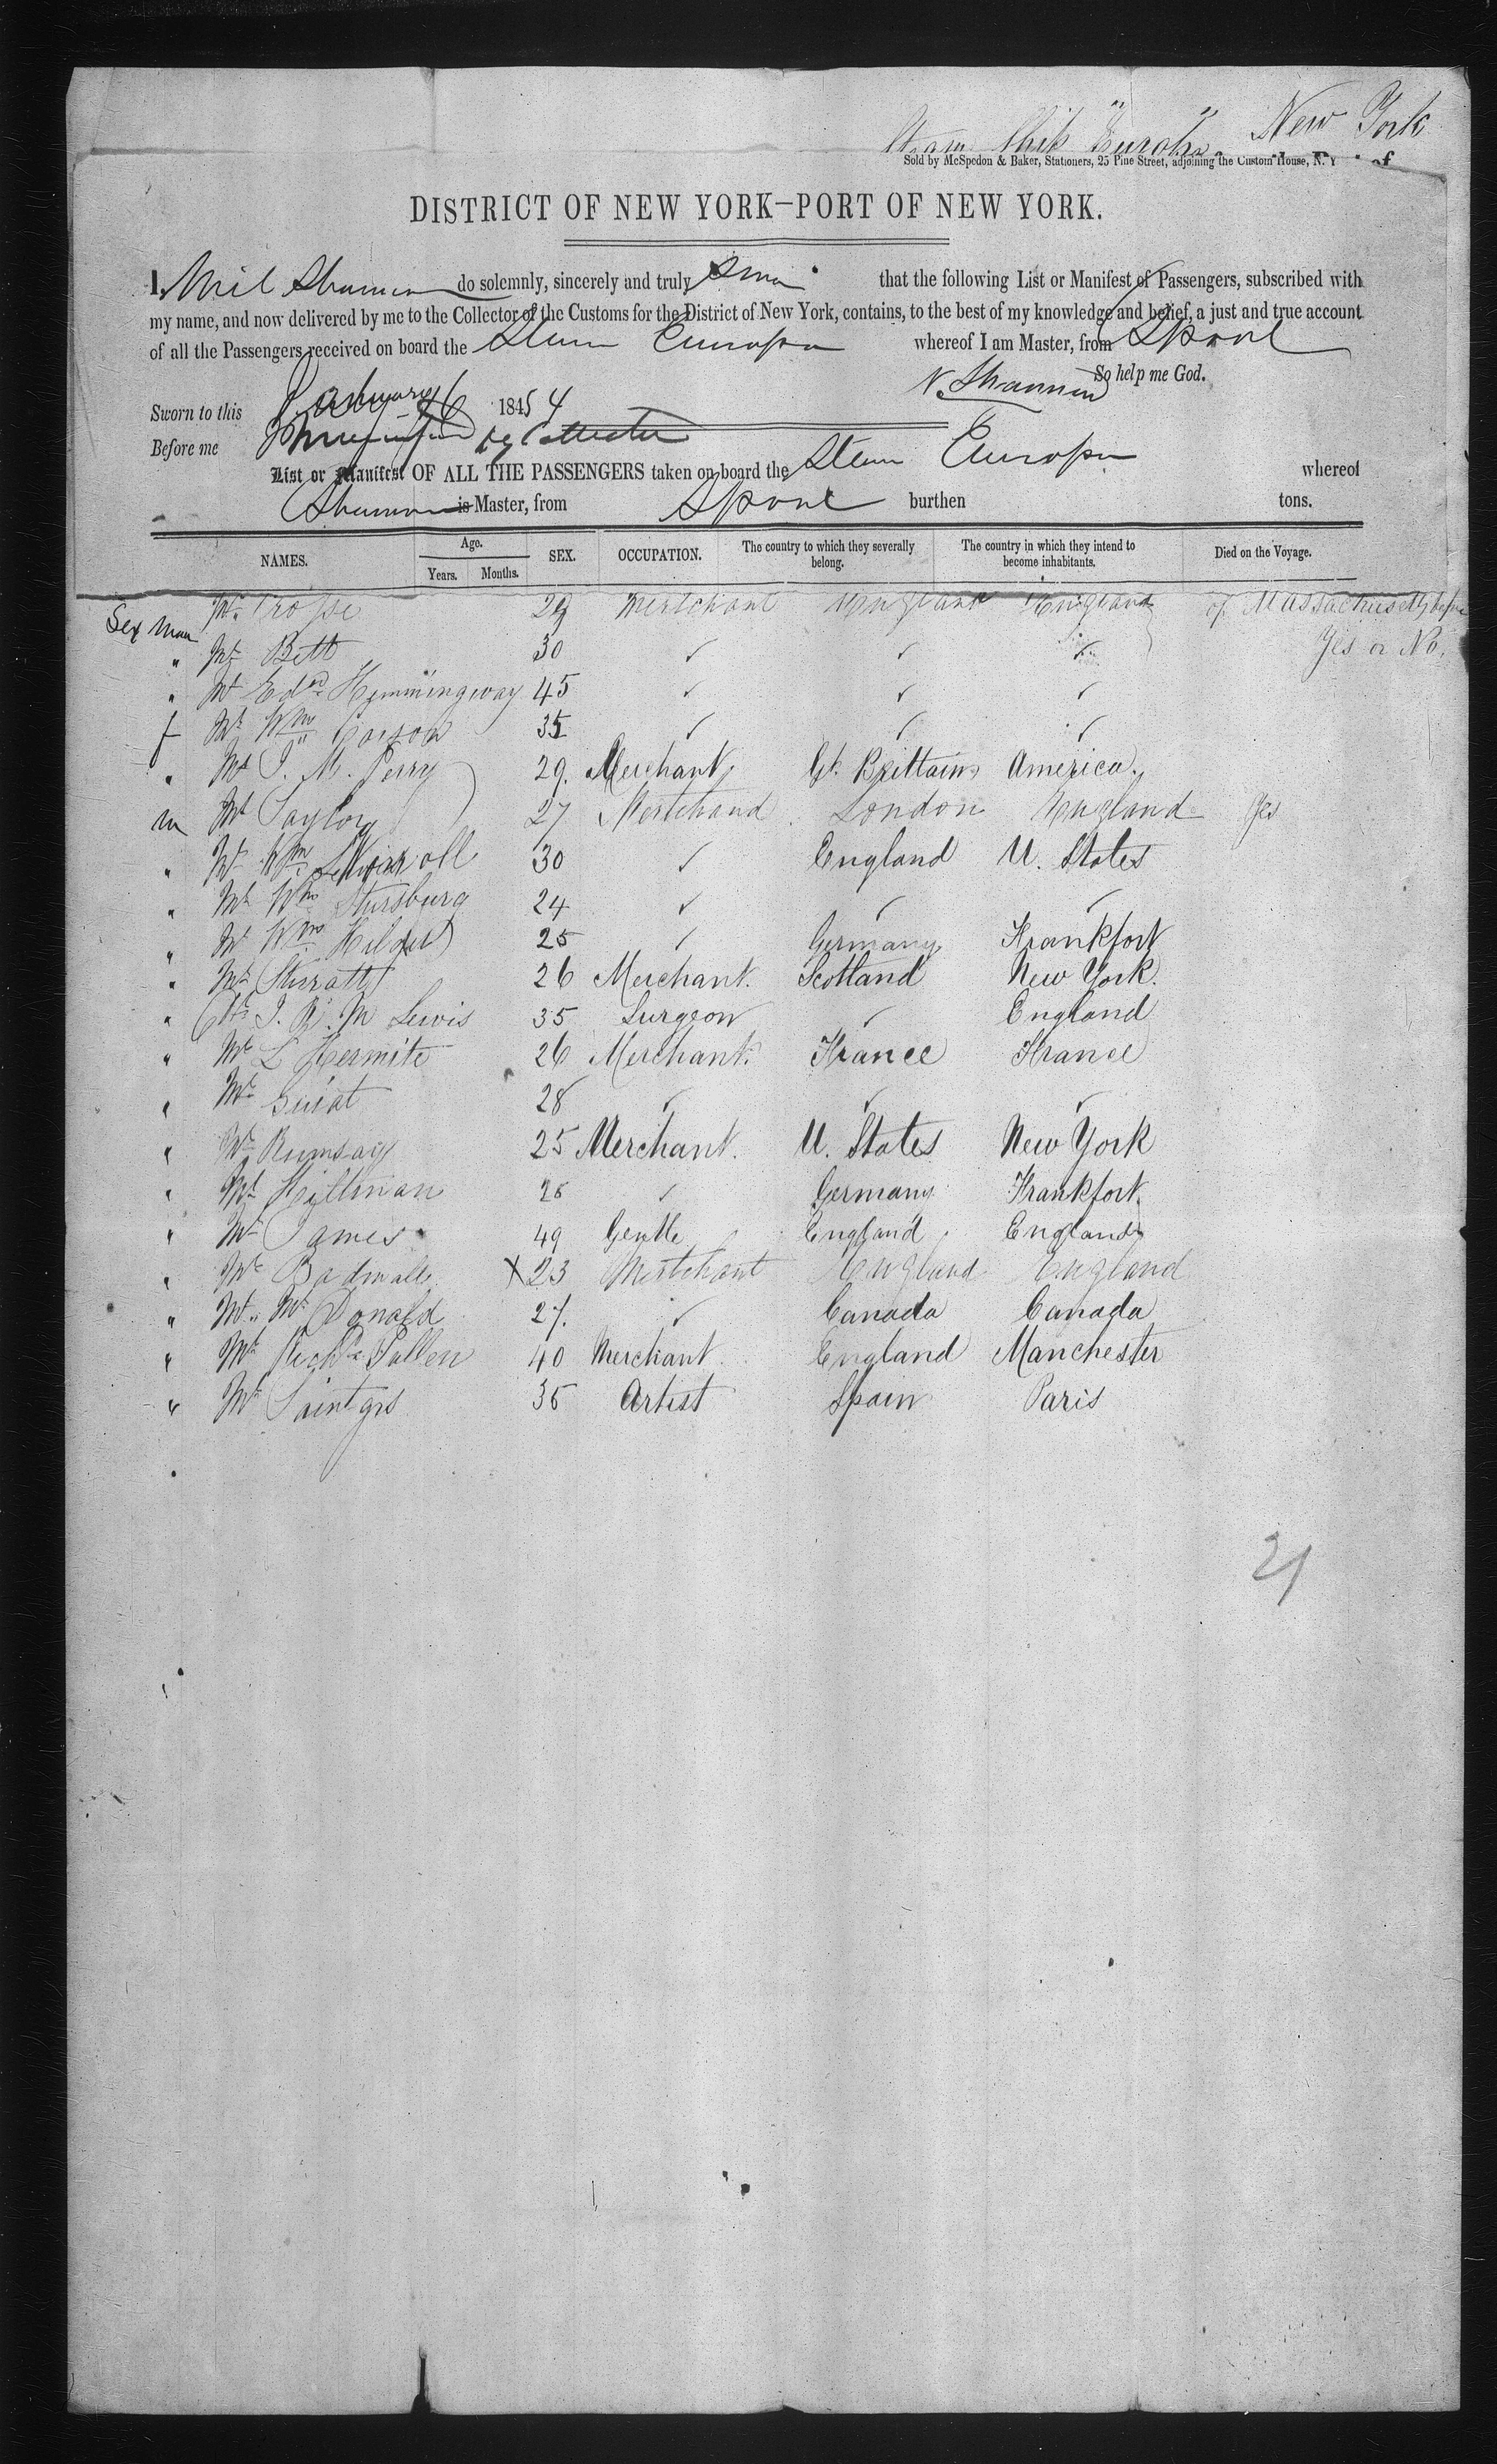 Steam Ship "Europa" New York
Sold by McSpedon & Baker, Stationers, 25 Pine Street, adjoining the Custom House, N. Y
DISTRICT OF NEW YORK—PORT OF NEW YORK.
I, Neil Shannon do solemnly, sincerely and truly swear that the following List or Manifest of Passengers, subscribed with
my name, and now delivered by me to the Collector of the Customs for the District of New York, contains, to the best of my knowledge and belief, a just and true account
of all the Passengers received on board the Steam Europa whereof I am Master, from Lpool
So help me God.
N. Shannon
Sworn to this January 1854
Before me
List or Manifest OF ALL THE PASSENGERS taken on board the Steam Europa whereof
Shannon is Master, from Lpool burthen tons.
NAMES. Age. Years. Months. SEX. OCCUPATION. The country to which they severally belong. The country in which they intend to become inhabitants. Died on the Voyage.
Sex Man Mr. 29 Merchant England England of Massachusetts before
" Mr Bett 30 ✓ ✓ ✓ Yes or No.
" Mr Edwd Hemmingway 45 ✓ ✓ ✓
f Mr Wm Carson 35 ✓ ✓ ✓
" Mr J. M. Perry 29. Merchant Gt. Brittain America.
m Mr Taylor 27 Mertchand London England Yes
" Mr Wm 30 ✓ England U. States
" Mr Wm Stursburg 24 ✓ ✓ ✓
" Mr Wm 25 ✓ Germany Frankfort
" Mr 26 Merchant. Scotland New York.
" J. R. M Lewis 35 Surgeon ✓ England
" Mr L Hermite 26 Merchant. France France
" Mr 28 ✓ ✓ ✓
" Mr Rumsay 25 Merchant. U. States New York
" Mr Hillman 28 ✓ Germany Frankfort.
" Mr James 49 Gentle England England
" Mr X 23 Mertchant England England
" Mr Mc Donald 27. ✓ Canada Canada
" Mr Richd Pullen 40 Merchant England Manchester
" Mr 35 Artist Spain Paris
21